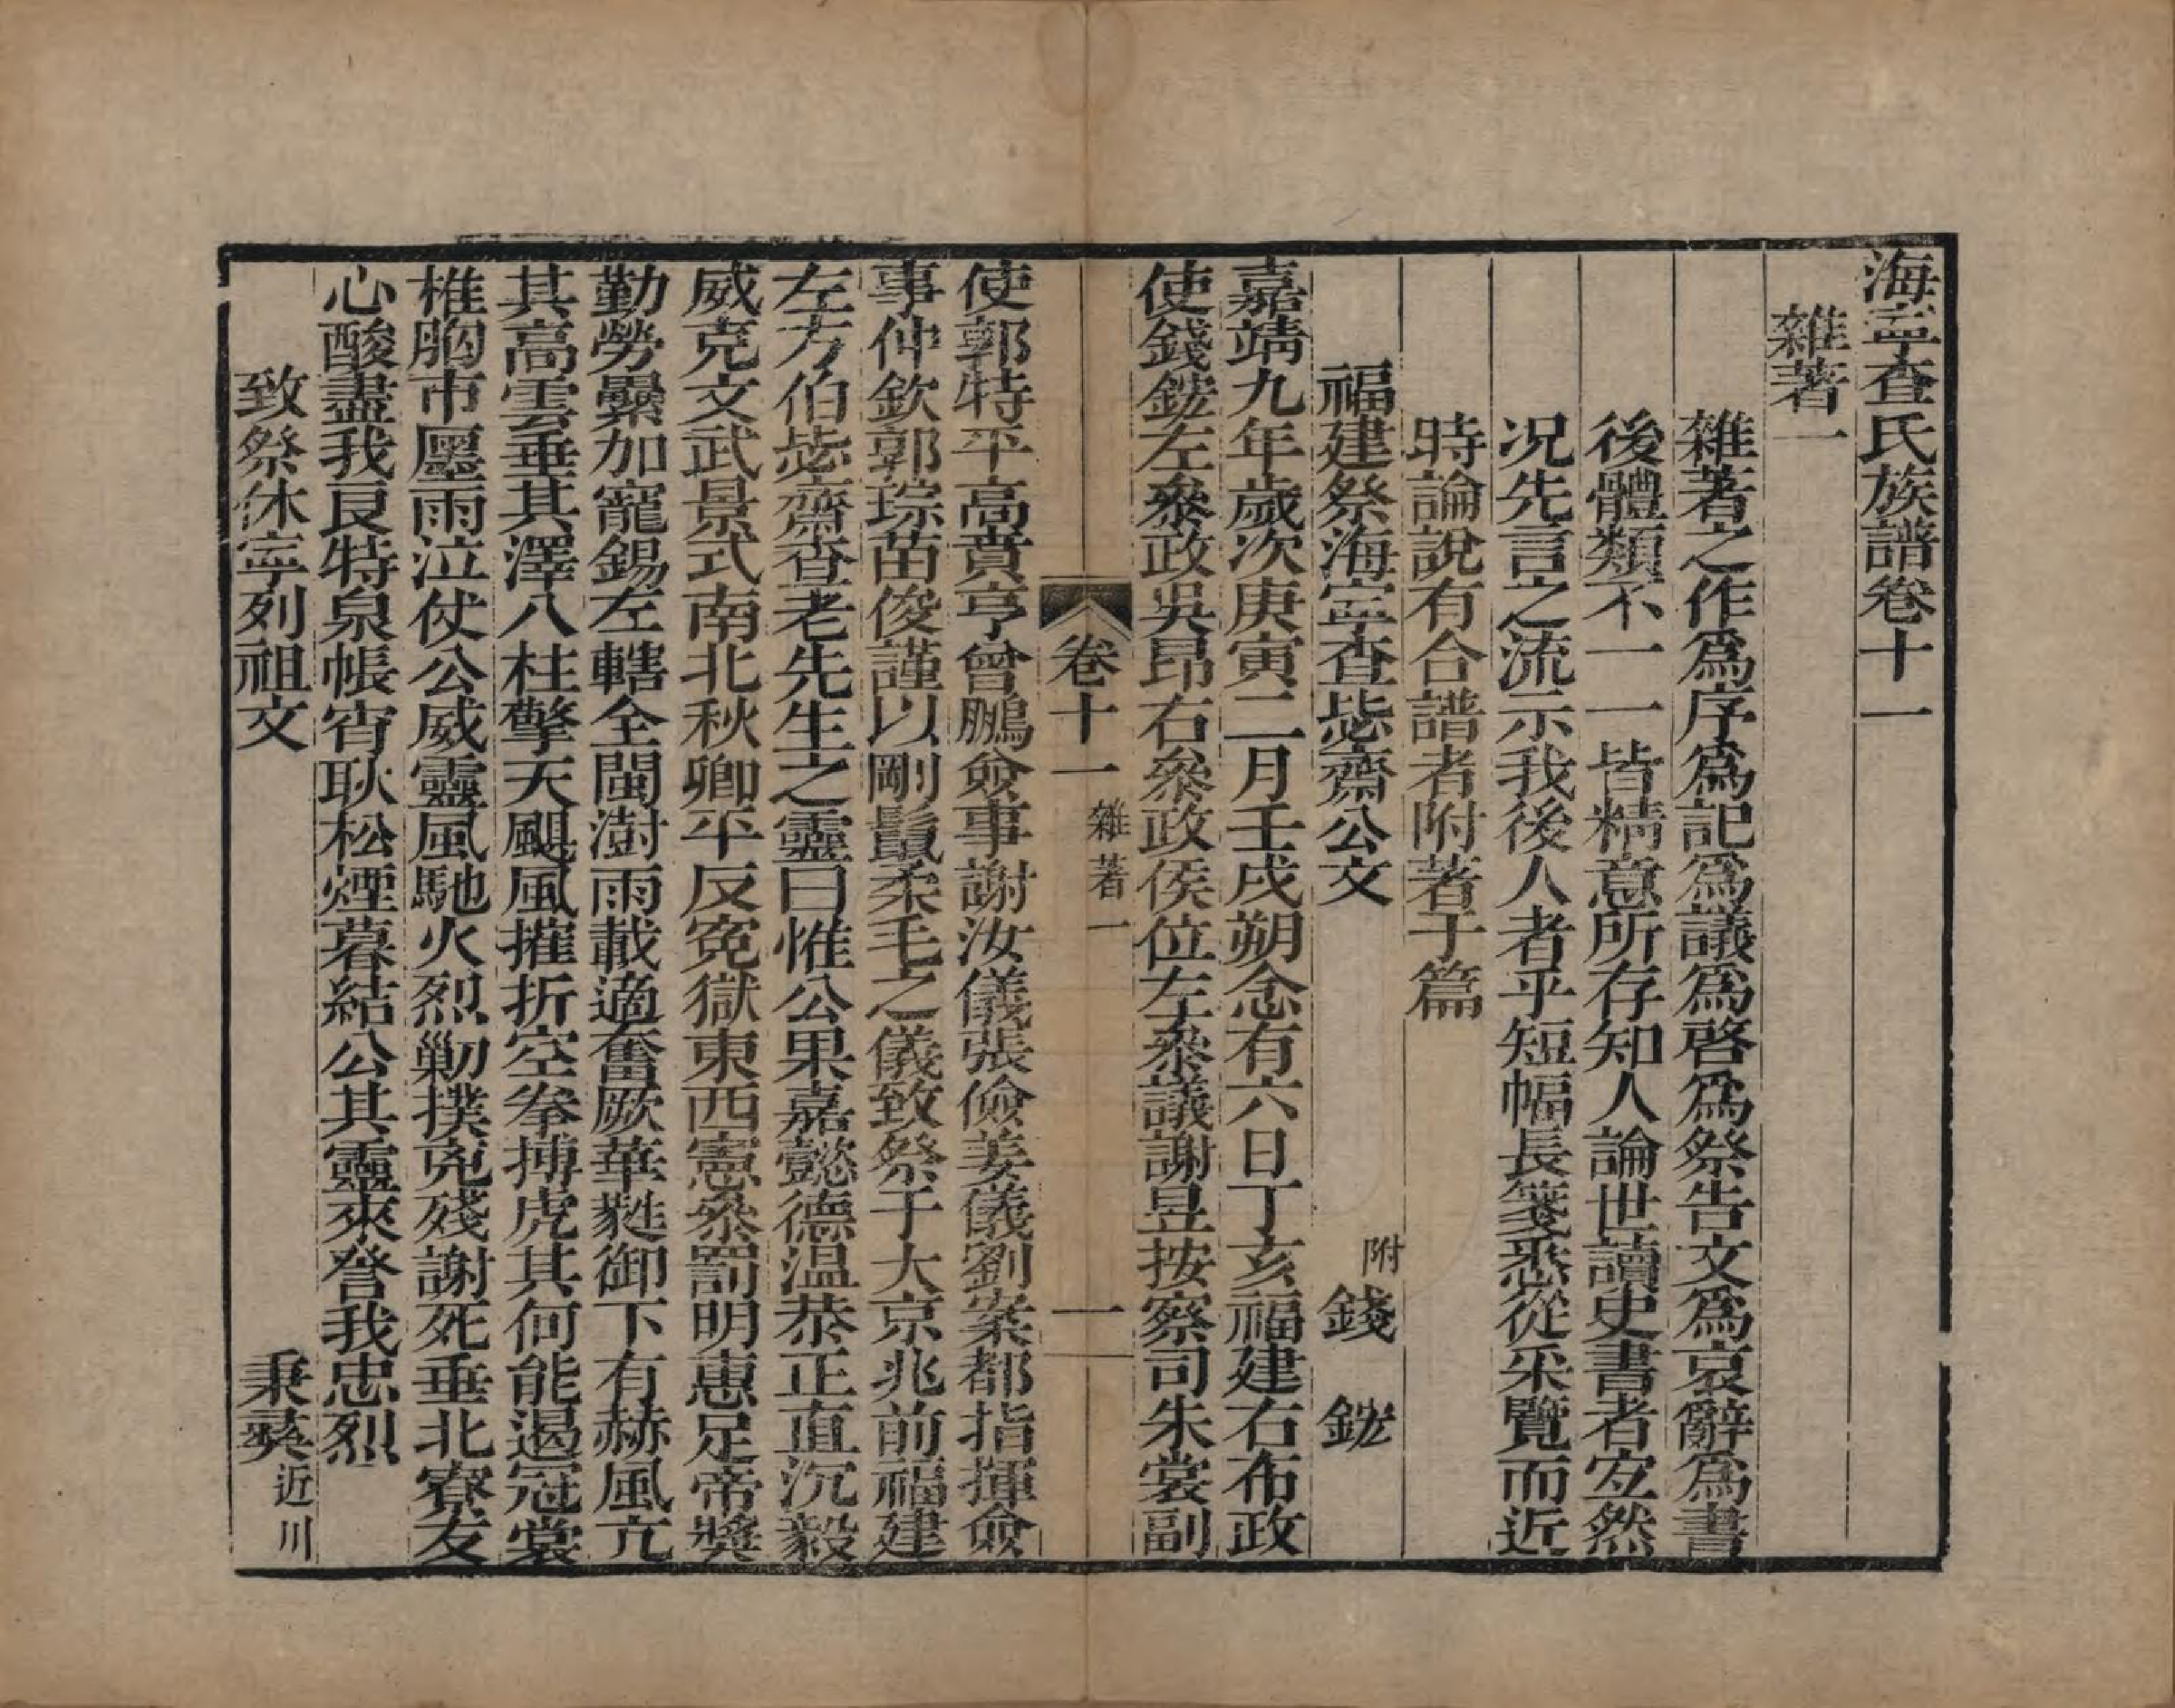 海寧查氏族譜卷十一
雜著一
雜著之作爲序爲記爲議爲啓爲祭告文爲哀辭爲書
後體類不一一皆精意所存知人論世讀史書者宜然
况先言之流示我後人者乎短幅長箋悉從采覽而近
時論說有合譜者附著于篇
福建祭海寧查毖齋公文 附錢 鋐
嘉靖九年歲次庚寅二月壬戌朔念有六日丁亥福建右布政
使錢鋐左叅政吳昂右叅政侯位左叅議謝昱按察司朱裳副
卷十一 雜著一 一
使郭特平高賁亨曾鵬僉事謝汝儀張儉姜儀劉案都指揮僉
事仲欽郭琮苗俊謹以剛鬛柔毛之儀致祭于大京兆前福建
左方伯毖齋查老先生之靈曰惟公果嘉懿德温恭正直沉毅
威克文武景式南北秋卿平反寃獄東西憲叅罰明惠足帝奬
勤勞纍加寵錫左轄全閩澍雨載適奮厥華蕤御下有赫風亢
其高雲垂其澤八柱擎天颶風摧折空拳搏虎其何能遏冠裳
椎胸市廛雨泣仗公威靈風馳火烈勦撲兇殘謝死垂北寮友
心酸盡我良特泉帳宵耿松煙暮結公其靈來詧我忠烈
致祭休寧列祖文 秉彛近川